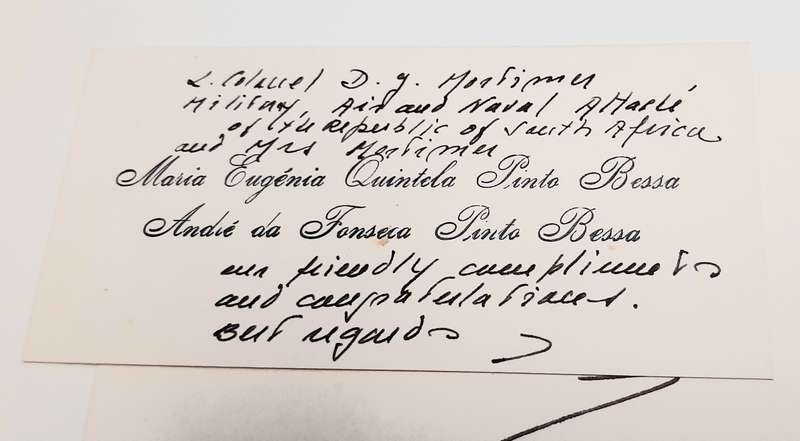 L. Colonel D. g. Mortimer
Military, Air and Naval Attaché
of the Republic of South Africa
and Mrs Mortimer
Maria Eugénia Quintela Pinto Bessa
André da Fonseca Pinto Bessa
our friendly compliments
and congratulations.
Best regards